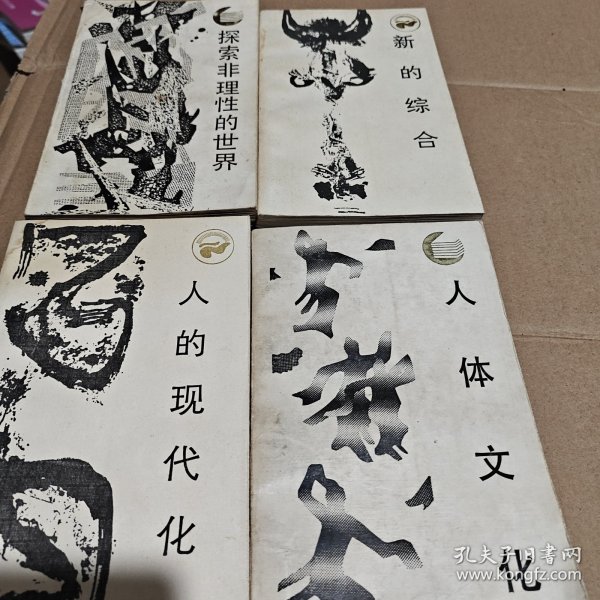 探索非理性的世界
新的综合
人的现代化
人体文化
孔夫子旧书网
www.kongfz.com